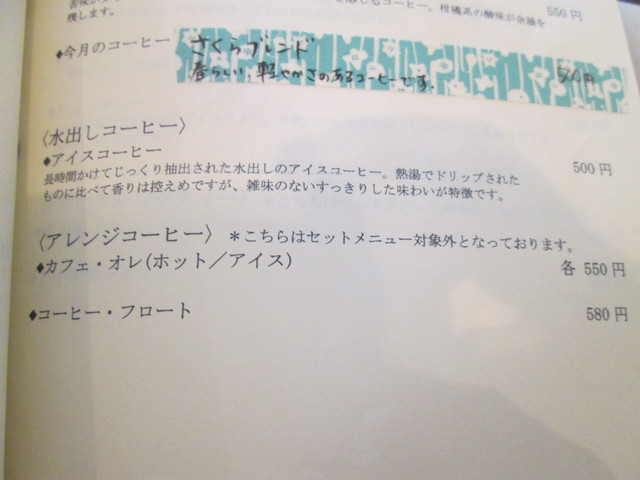 感じるコーヒー。柑橘系の酸味が余韻を
残します。
550 円
♦今月のコーヒー さくらブレンド
春らしい、軽やかさのあるコーヒーです。 500円
〈水出しコーヒー〉
♦アイスコーヒー 500 円
長時間かけてじっくり抽出された水出しのアイスコーヒー。熱湯でドリップされた
ものに比べて香りは控えめですが、雑味のないすっきりした味わいが特徴です。
〈アレンジコーヒー〉 *こちらはセットメニュー対象外となっております。
♦カフェ・オレ(ホット／アイス) 各 550 円
♦コーヒー・フロート 580 円